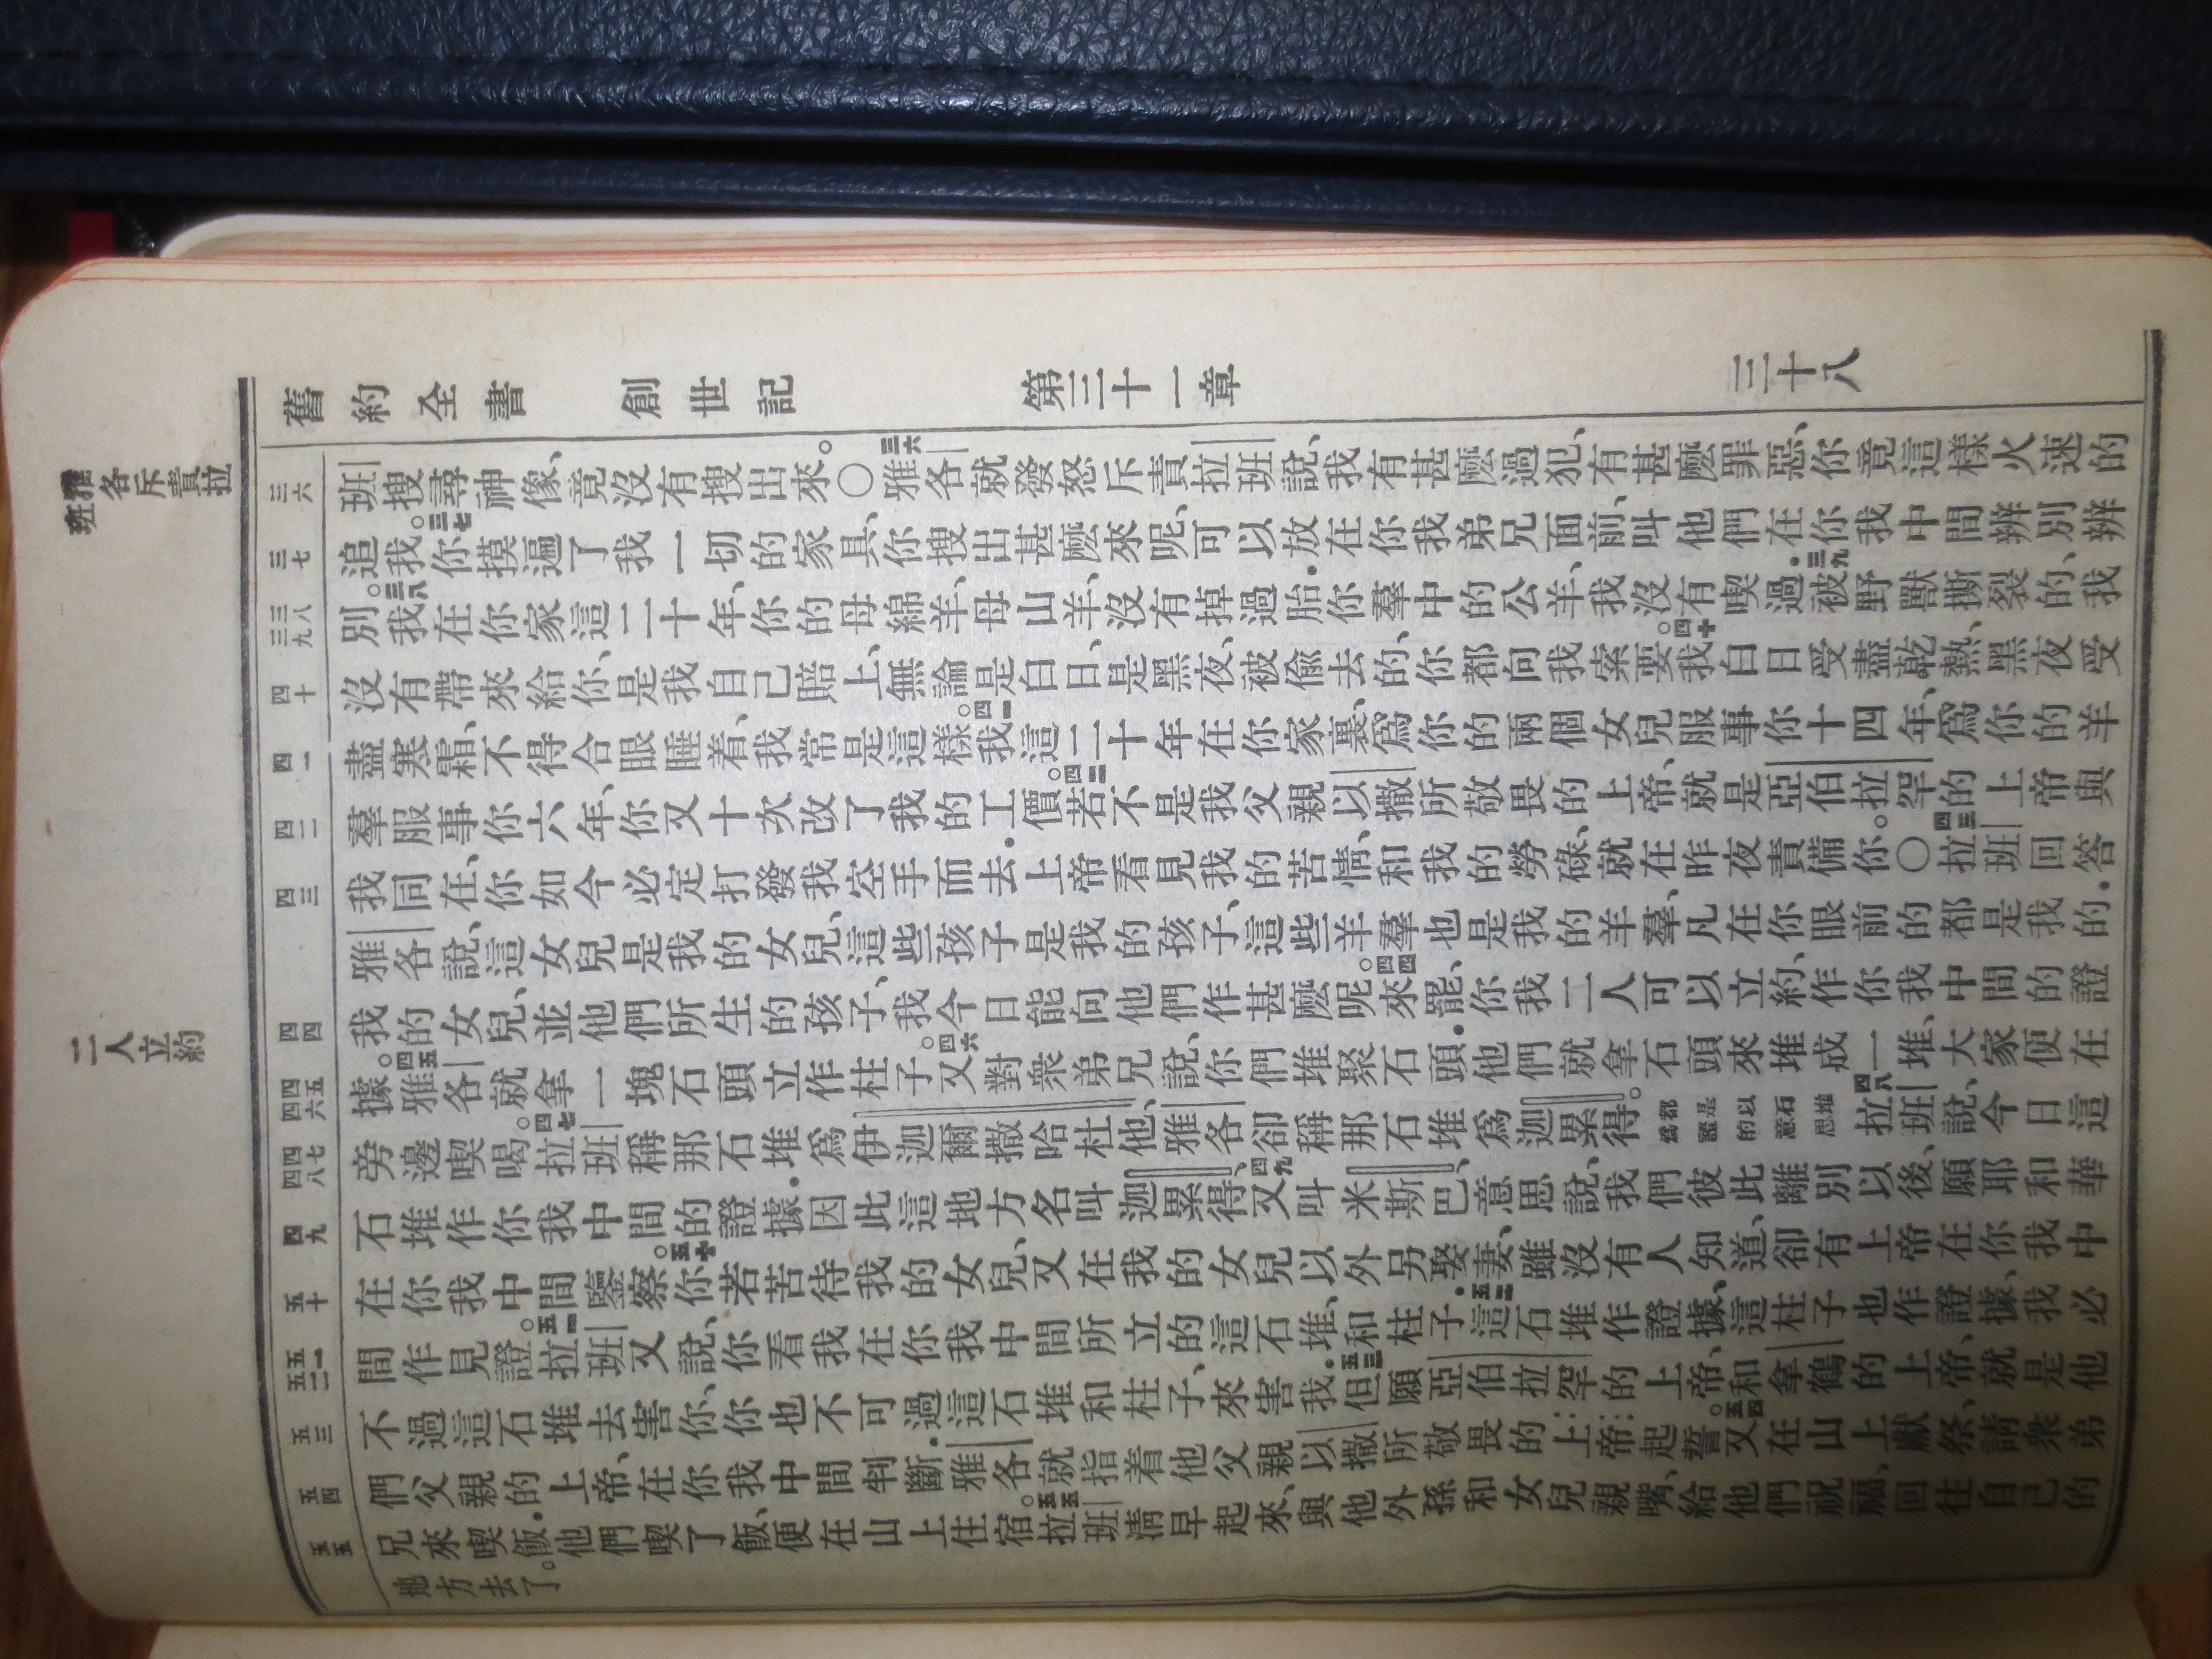 舊約全書 創世記 第三十一章 三十八
雅各斥責拉班
二人立約
三六
三七
三八三九
四十
四一
四二
四三
四四
四五四六
四七四八
四九
五十
五一五二
五三
五四
五五
班搜尋神像、竟沒有搜出來。〇三六雅各就發怒斥責拉班說、我有甚麼過犯、有甚麼罪惡、你竟這樣火速的
追我。三七你摸遍了我一切的家具、你搜出甚麼來呢、可以放在你我弟兄面前、叫他們在你我中間辨別辨
別。三八我在你家這二十年、你的母綿羊、母山羊、沒有掉過胎．你羣中的公羊、我沒有喫過．三九被野獸撕裂的、我
沒有帶來給你、是我自己賠上、無論是白日、是黑夜、被偷去的、你都向我索要。四十我白日受盡乾熱、黑夜受
盡寒霜、不得合眼睡着、我常是這樣。四一我這二十年在你家裏、爲你的兩個女兒服事你十四年、爲你的羊
羣服事你六年、你又十次改了我的工價。四二若不是我父親以撒所敬畏的上帝、就是亞伯拉罕的上帝與
我同在、你如今必定打發我空手而去．上帝看見我的苦情、和我的勞碌、就在昨夜責備你。〇四三拉班回答
雅各說、這女兒是我的女兒、這些孩子是我的孩子、這些羊羣也是我的羊羣、凡在你眼前的都是我的．
我的女兒、並他們所生的孩子、我今日能向他們作甚麼呢。四四來罷、你我二人可以立約、作你我中間的證
據。四五雅各就拿一塊石頭立作柱子。四六又對衆弟兄說、你們堆聚石頭．他們就拿石頭來堆成一堆、大家便在
旁邊喫喝。四七拉班稱那石堆爲伊迦爾撒哈杜他、雅各卻稱那石堆爲迦累得。都是以石堆爲證的意思四八拉班說、今日這
石堆作你我中間的證據．因此這地方名叫迦累得、四九又叫米斯巴、意思說、我們彼此離別以後、願耶和華
在你我中間鑒察。五十你若苦待我的女兒、又在我的女兒以外另娶妻、雖沒有人知道、卻有上帝在你我中
間作見證。五一拉班又說、你看我在你我中間所立的這石堆、和柱子．五二這石堆作證據、這柱子也作證據、我必
不過這石堆去害你、你也不可過這石堆和柱子、來害我．五三但願亞伯拉罕的上帝、和拿鶴的上帝、就是他
們父親的上帝、在你我中間判斷．雅各就指着他父親以撒所敬畏的上帝起誓。五四又在山上獻祭、請衆弟
兄來喫飯．他們喫了飯、便在山上住宿。五五拉班淸早起來、與他外孫和女兒親嘴、給他們祝福、回往自己的
地方去了。